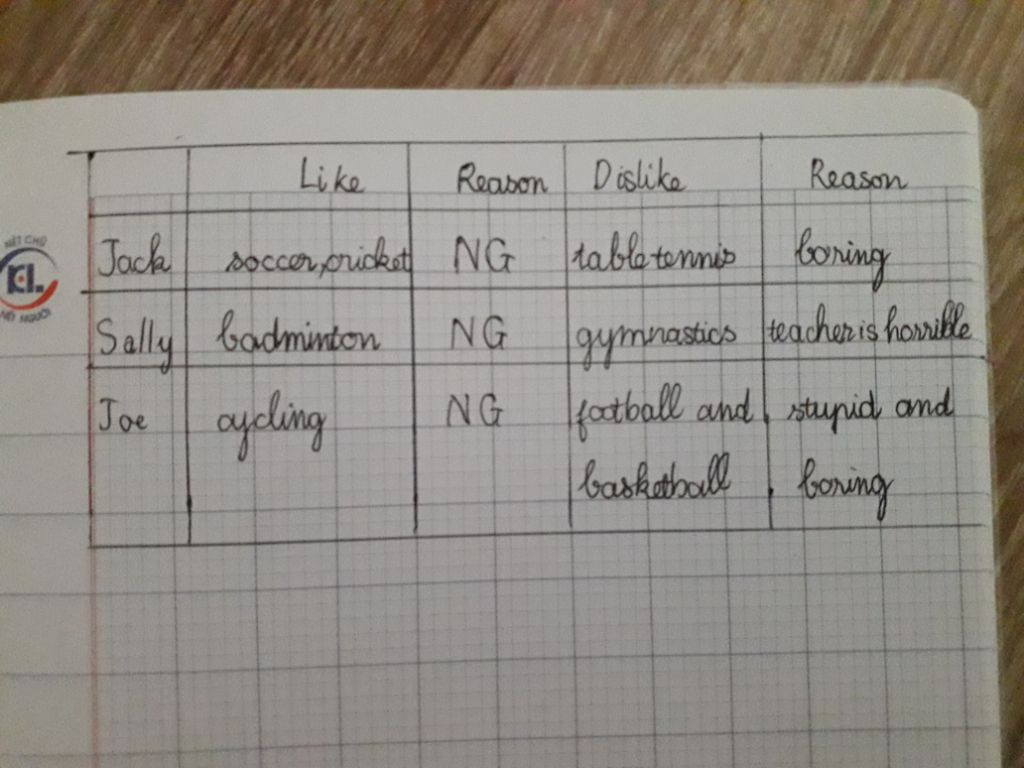 Like Reason Dislike Reason
Jack soccer, cricket NG table tennis boring
Sally badminton NG gymnastics teacher is horrible
Joe cycling NG football and stupid and
basketball boring
NÉT CHỮ
KL
NẾT NGƯỜI